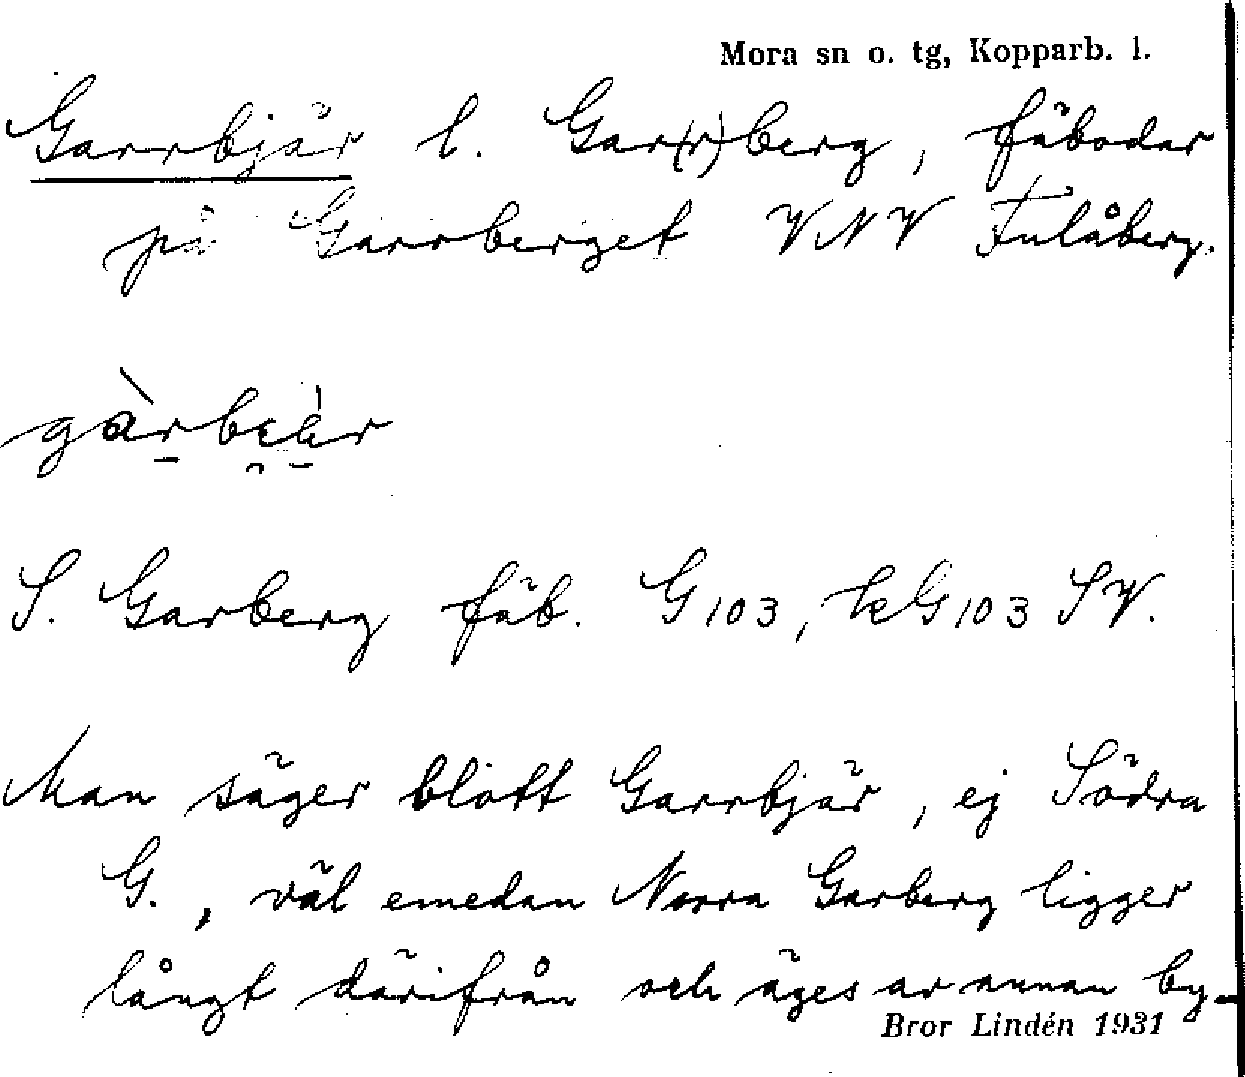 Mora sn o. tg, Kopparb. l.
Garrbjär l. Gar(r)berg, fäbodar
på Garrberget VNV Fulåberg.
S. Garberg fäb. G103, kG103 SV.
Man säger blott Garrbjär, ej Södra
G., väl emedan Norra Garberg ligger
långt därifrån och äges av annan by.
Bror Lindén 1931